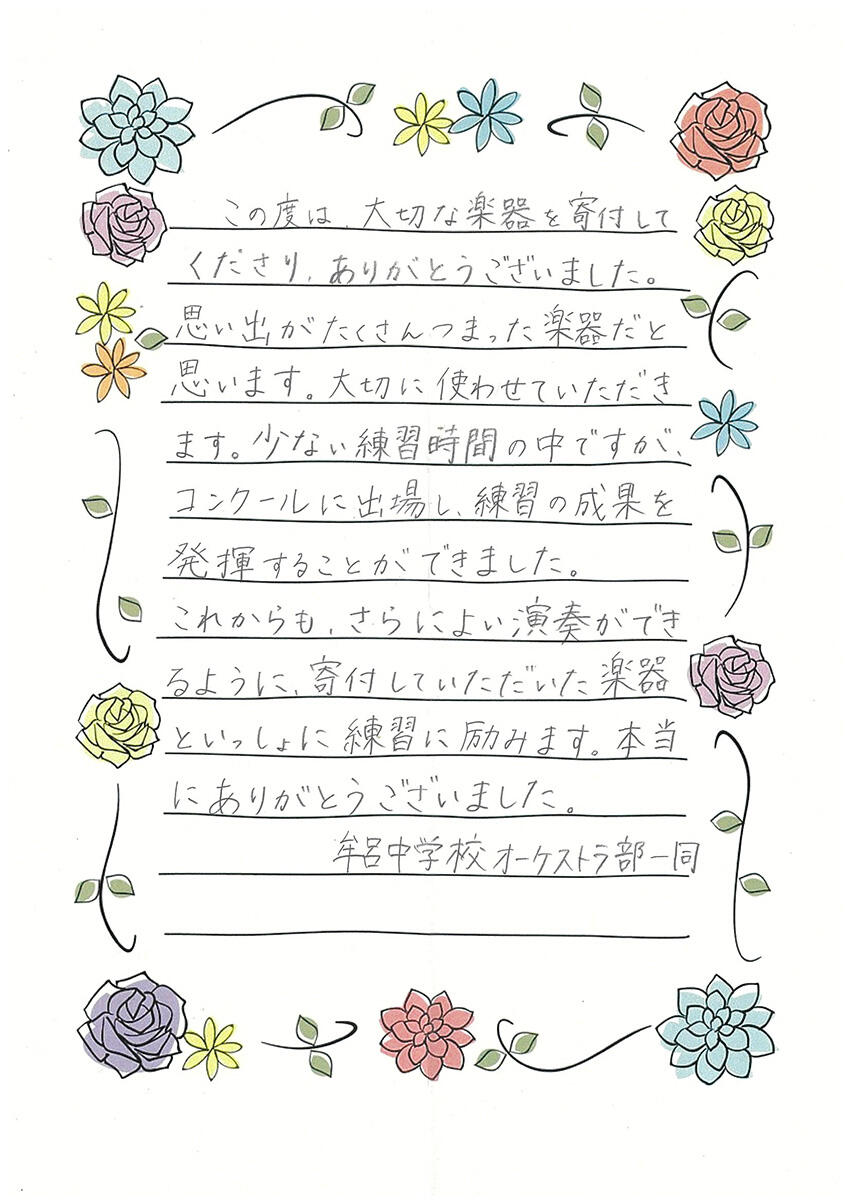 この度は、大切な楽器を寄付して
くださり、ありがとうございました。
思い出がたくさんつまった楽器だと
思います。大切に使わせていただき
ます。少ない練習時間の中ですが、
コンクールに出場し、練習の成果を
発揮することができました。
これからも、さらによい演奏ができ
るように、寄付していただいた楽器
といっしょに練習に励みます。本当
にありがとうございました。
牟呂中学校オーケストラ部一同